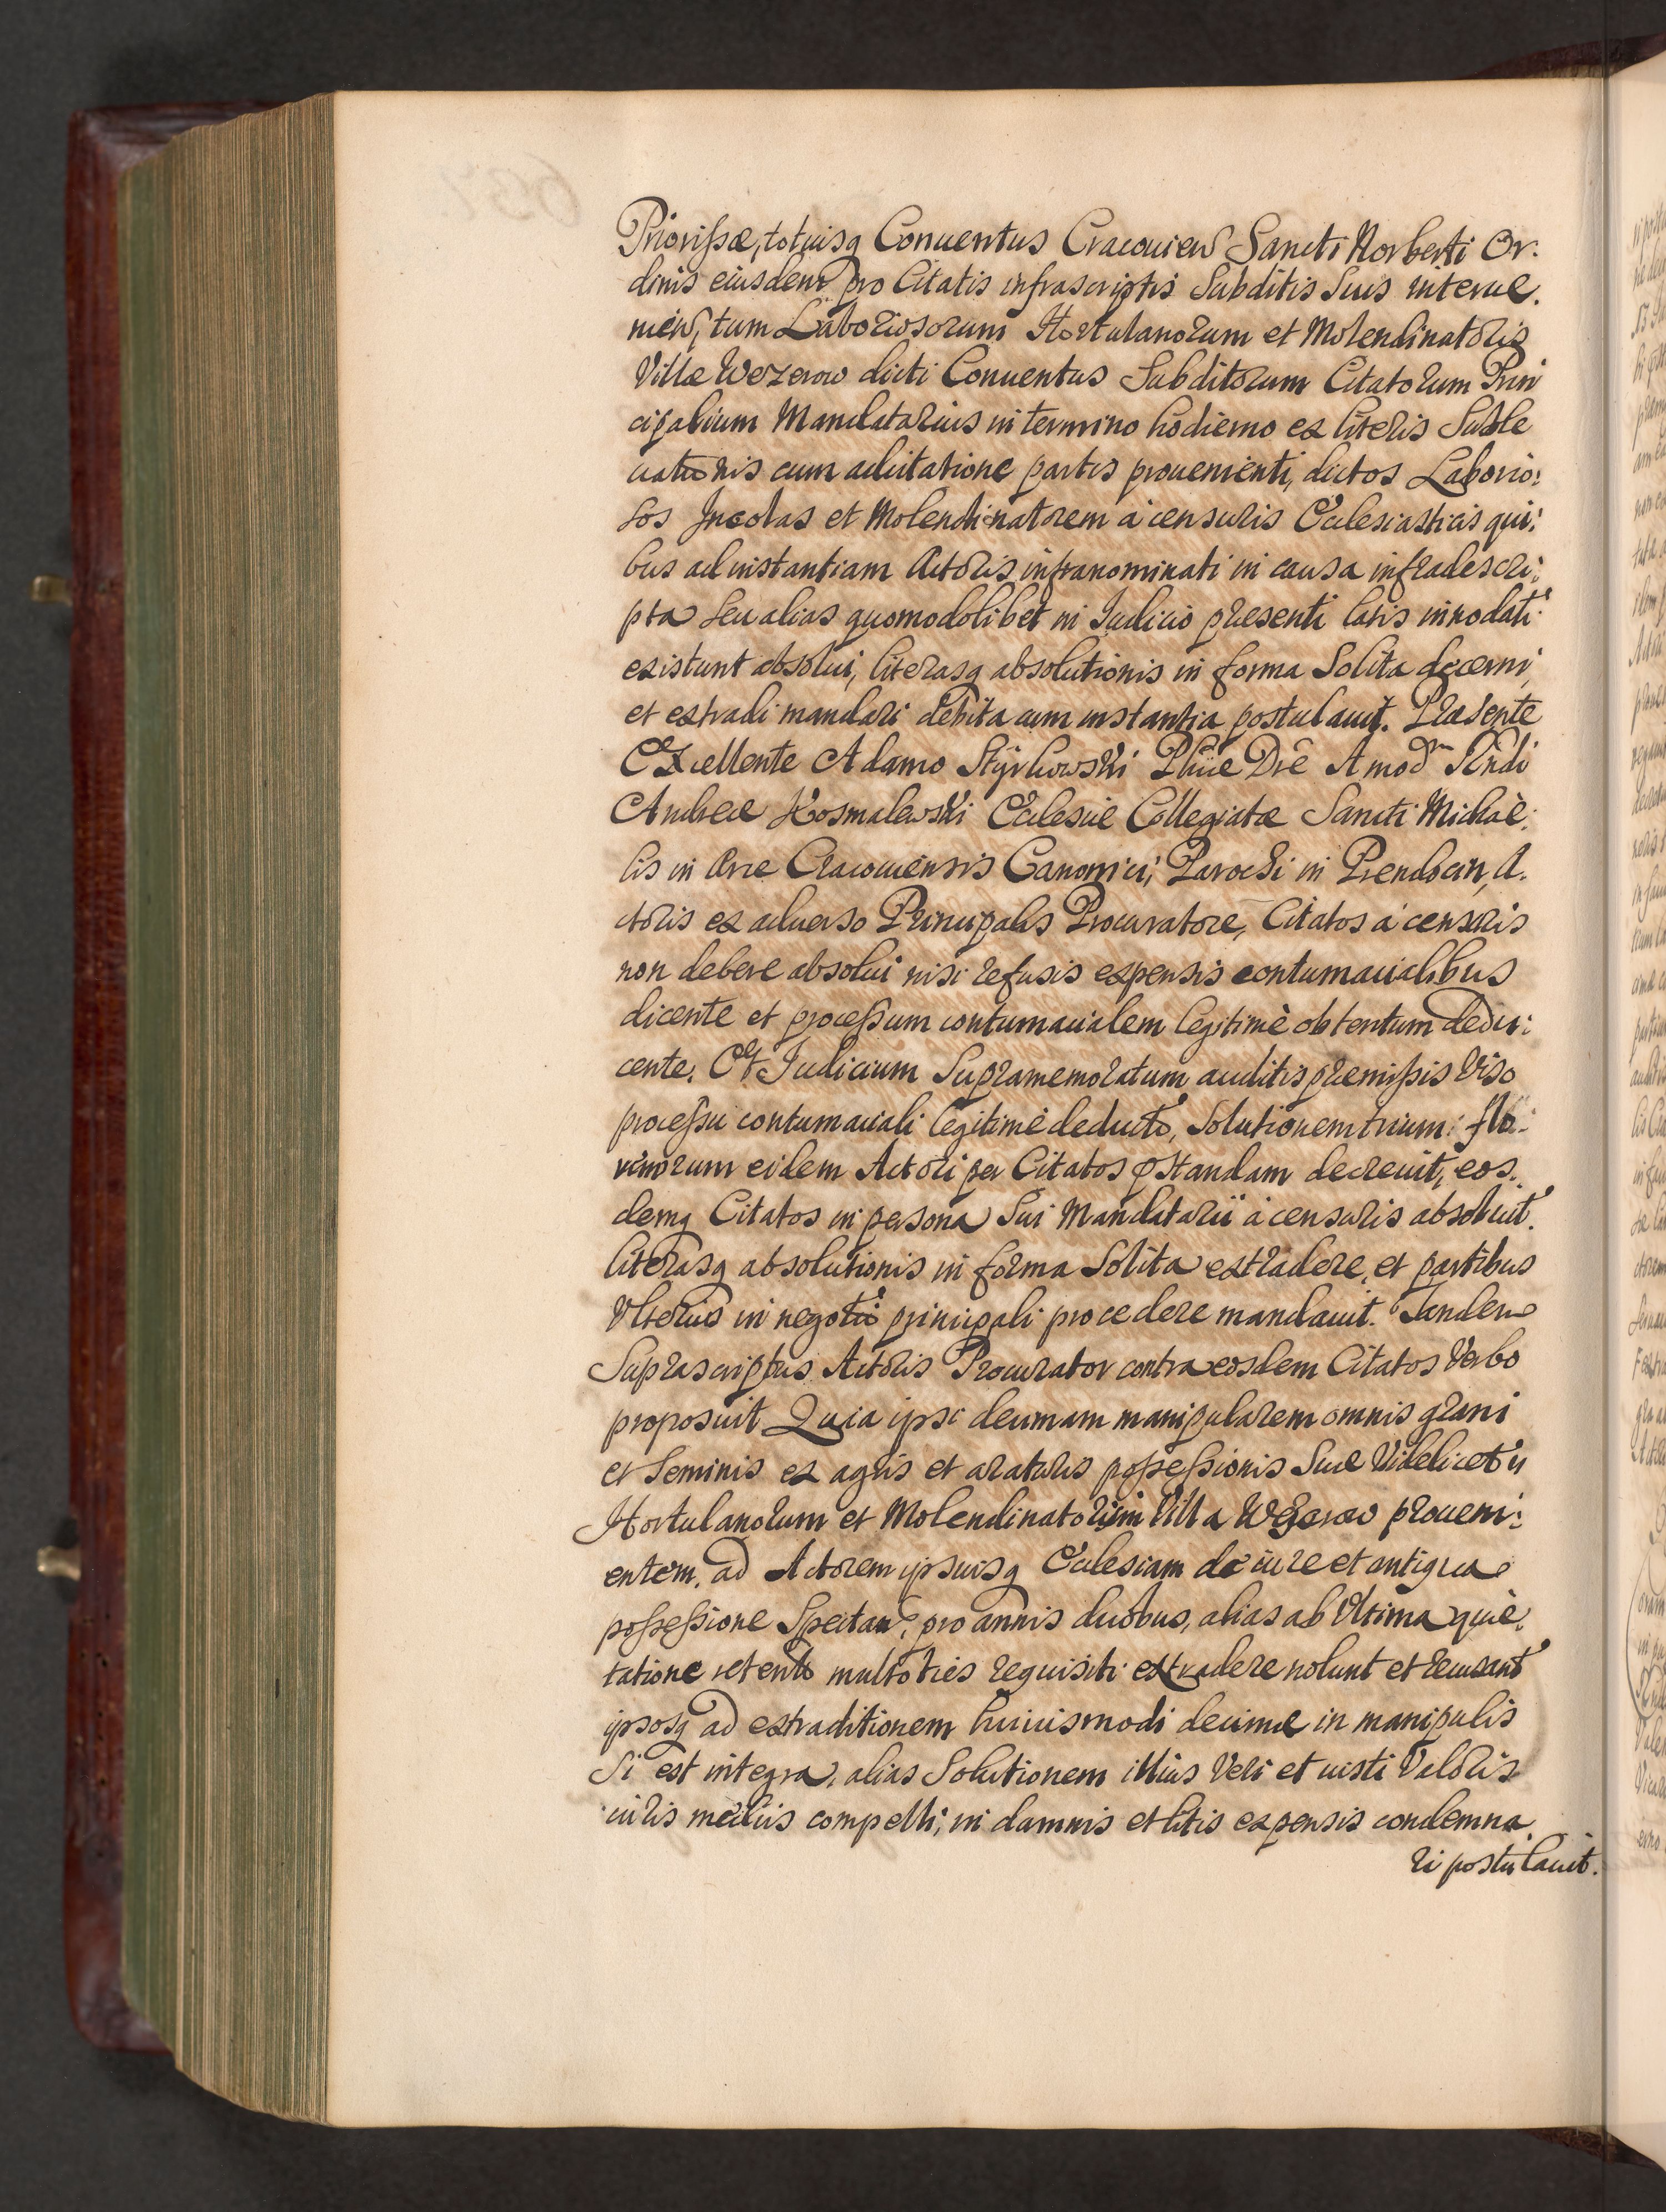 Priorissæ, totiusq Conuentus Cracouien Sancti Norberti Or:
dinis eiusdem pro Citatis infrascriptis Subditis Suis interue.
nien, tum Laboriosorum Hortulanorum et Molendinatoris
Villæ Wezerow dicti Conuentus Subditorum Citatorum Prin
cipalium Mandatarius in termino hodierno ex literis Suble
uationis cum adcitatione partis prouenienti, dictos Laborio:
sos Incolas et Molendinatorem à censuris Ecclesiasticis qui:
bus ad instantiam Actoris infranominati in causa infradescri:
pta seu alias quomodolibet in Iudicio præsenti latis innodati
existunt absolui, literasq absolutionis in forma Solita decerni,
et extradi mandari debita cum instantia postulauit. Præsente
Excellente Adamo Styrkowski Phiæ Dre Amod Rndi
Andreæ Kosmalewski Ecclesiæ Collegiatæ Sancti Michaë:
lis in Arce Cracouiensis Canonici, Parochi in Prendocin, A.
ctoris ex aduerso Principalis Procuratore, Citatos à censuris
non debere absolui nisi refusis expensis contumacialibus
dicente et processum contumacialem legitimè obtentum dedu:
cente. Et Iudicium Supramemoratum auditis præmissis Viso
processu contumaciali legitimè deducto, Solutionem trium: flo:
renorum eidem Actori per Citatos pstandam decreuit, eos.
demq Citatos in persona Sui Mandatarii à censuris absoluit.
literasq absolutionis in forma Solita extradere, et partibus
Vlterius in negotio principali procedere mandauit. Tandem
Suprascriptus Actoris Procurator contra eosdem Citatos Verbo
proposuit Quia ipsi decimam manipularem omnis grani
et Seminis ex agris et araturis possessionis Suæ Videlicet in
Hortulanorum et Molendinatorum Villa Wezerow proueni:
entem, ad Actorem ipsiusq Ecclesiam de iure et antiqua
possessione Spectan, pro annis duobus, alias ab Vltima quie:
tatione retento multoties requisiti extradere nolunt et recusant
ipsosq ad extraditionem huiusmodi decimæ in manipulis
Si est integra, alias Solutionem illius Veri et iusti Valoris
iuris mediis compelli, in damnis et litis expensis condemna
ri postulauit.